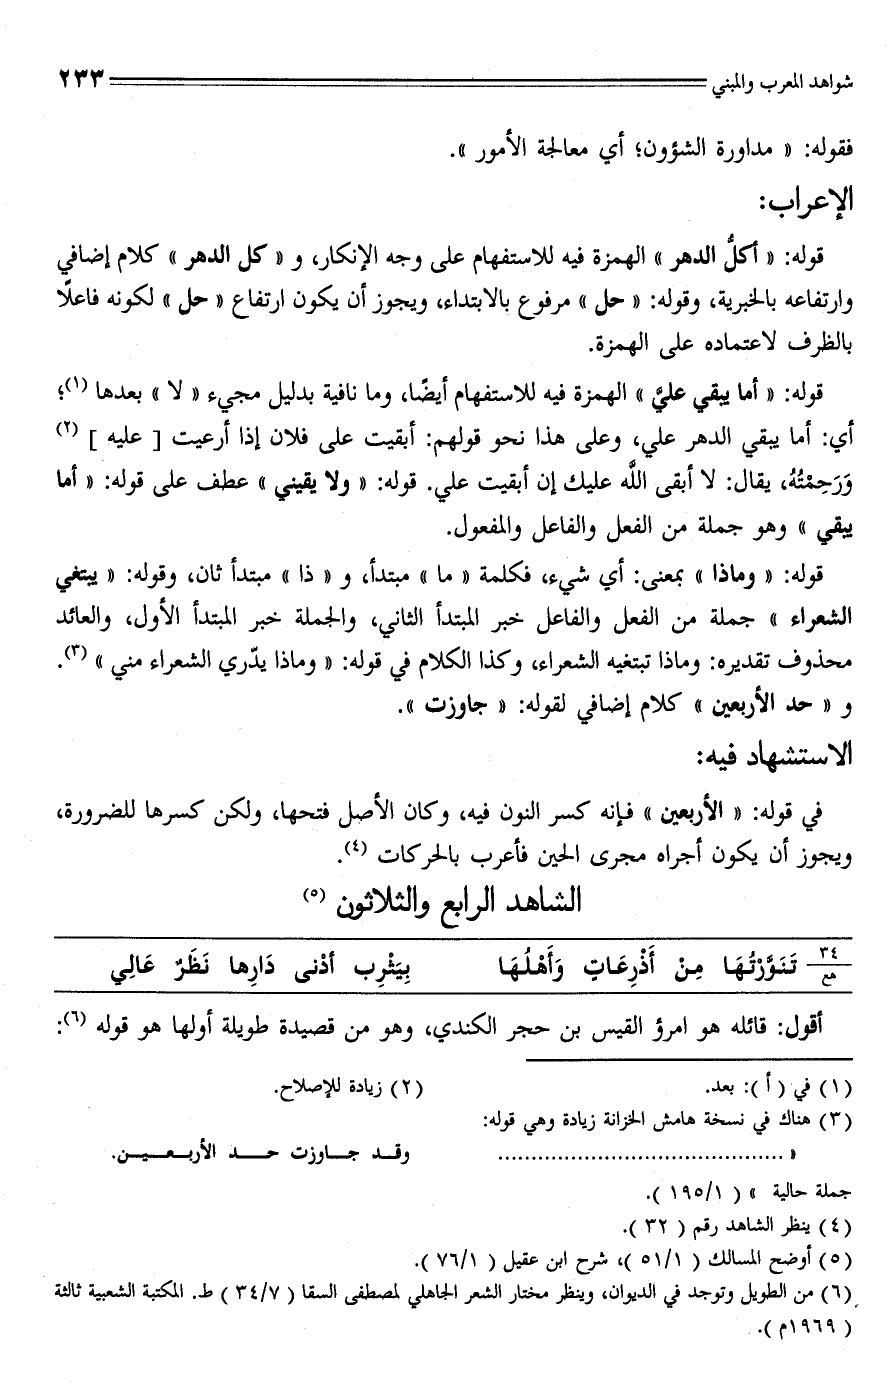 شواهد المعرب والمبني ٢٣٣
فقوله: « مداورة الشؤون؛ أي معالجة الأمور ».
الإعراب:
قوله: « أكلُّ الدهر » الهمزة فيه للاستفهام على وجه الإنكار، و « كل الدهر » كلام إضافي
وارتفاعه بالخبرية، وقوله: « حل » مرفوع بالابتداء، ويجوز أن يكون ارتفاع « حل » لكونه فاعلًا
بالظرف لاعتماده على الهمزة.
قوله: « أما يبقي عليَّ » الهمزة فيه للاستفهام أيضًا، وما نافية بدليل مجيء « لا » بعدها (١)؛
أي: أما يبقي الدهر علي، وعلى هذا نحو قولهم: أبقيت على فلان إذا أرعيت [ عليه ] (٢)
وَرَحِمْتُهُ، يقال: لا أبقى اللَّه عليك إن أبقيت علي. قوله: « ولا يقيني » عطف على قوله: « أما
يبقي » وهو جملة من الفعل والفاعل والمفعول.
قوله: « وماذا » بمعنى: أي شيء، فكلمة « ما » مبتدأ، و « ذا » مبتدأ ثان، وقوله: « يبتغي
الشعراء » جملة من الفعل والفاعل خبر المبتدأ الثاني، والجملة خبر المبتدأ الأول، والعائد
محذوف تقديره: وماذا تبتغيه الشعراء، وكذا الكلام في قوله: « وماذا يدّري الشعراء مني » (٣).
و « حد الأربعين » كلام إضافي لقوله: « جاوزت ».
الاستشهاد فيه:
في قوله: « الأربعين » فإنه كسر النون فيه، وكان الأصل فتحها، ولكن كسرها للضرورة،
ويجوز أن يكون أجراه مجرى الحين فأعرب بالحركات (٤).
الشاهد الرابع والثلاثون (٥)
٣٤/هع تَنَوَّرْتُهَا مِنْ أَذْرِعَاتٍ وَأَهْلُهَا بِيَثْرِب أدْنى دَارِها نَظَرٌ عَالِي
أقول: قائله هو امرؤ القيس بن حجر الكندي، وهو من قصيدة طويلة أولها هو قوله (٦):
(١) في ( أ ): بعد. (٢) زيادة للإصلاح.
(٣) هناك في نسخة هامش الخزانة زيادة وهي قوله:
« ........................................... وقــد جــاوزت حــد الأربــعــيــن.
جملة حالية » ( ١/ ١٩٥ ).
(٤) ينظر الشاهد رقم ( ٣٢ ).
(٥) أوضح المسالك ( ١/ ٥١ )، شرح ابن عقيل ( ١/ ٧٦ ).
(٦) من الطويل وتوجد في الديوان، وينظر مختار الشعر الجاهلي لمصطفى السقا ( ٧/ ٣٤ ) ط. المكتبة الشعبية ثالثة
( ١٩٦٩م ).